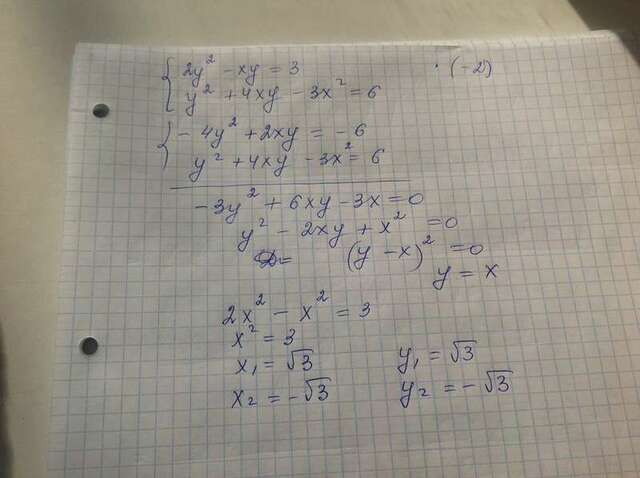 { 2y² - xy = 3 · (-2)
{ y² + 4xy - 3x² = 6
{ - 4y² + 2xy = - 6
y² + 4xy - 3x² = 6
-3y² + 6xy - 3x = 0
y² - 2xy + x² = 0
(y - x)² = 0
y = x
2x² - x² = 3
x² = 3
x₁ = √3 y₁ = √3
x₂ = -√3 y₂ = -√3